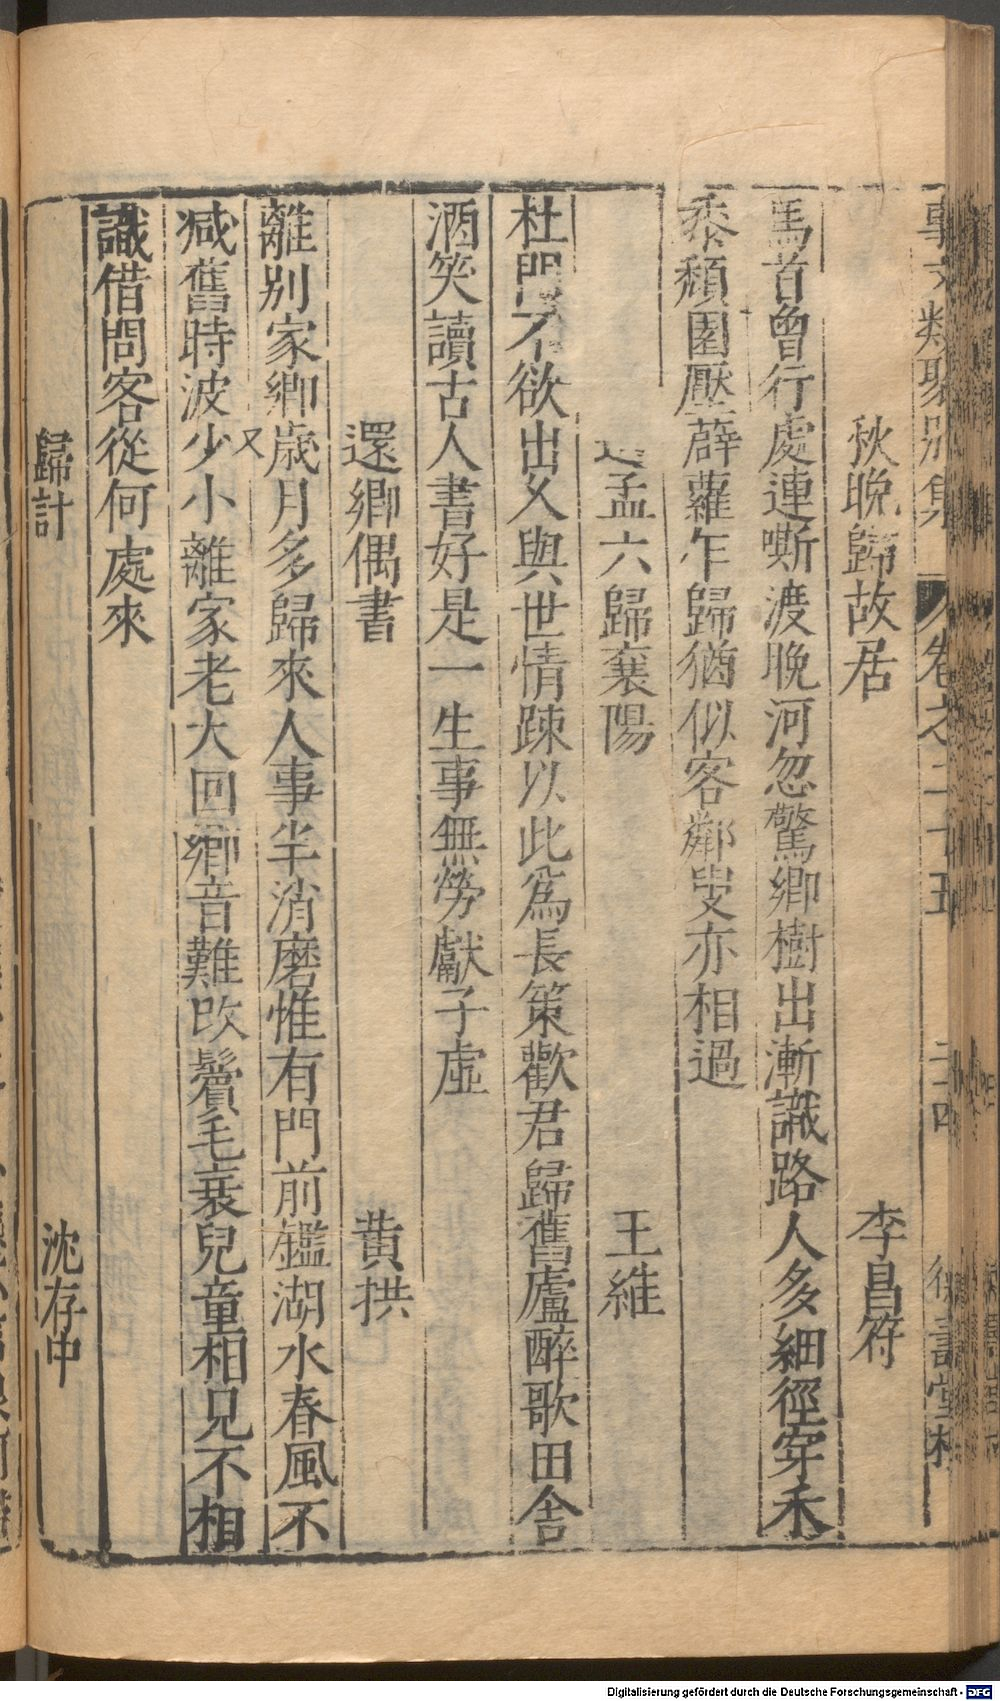 事文類聚別集 卷之二十五 二十四
秋晚歸故居 李昌符
馬首曾行處連嘶渡晚河忽驚鄉樹出漸識路人多細徑穿禾
黍頹園壓薜蘿乍歸猶似客鄰叟亦相過
送孟六歸襄陽 王維
杜門不欲出久與世情踈以此爲長策歡君歸舊廬醉歌田舍
酒笑讀古人書好是一生事無勞獻子虛
還鄉偶書 黄拱
離別家鄉歲月多歸來人事半消磨惟有門前鑑湖水春風不
减舊時波 又 少小離家老大回鄉音難改鬢毛衰兒童相兄不相
識借問客從何處來
歸計 沈存中
Digitalisierung gefördert durch die Deutsche Forschungsgemeinschaft - DFG